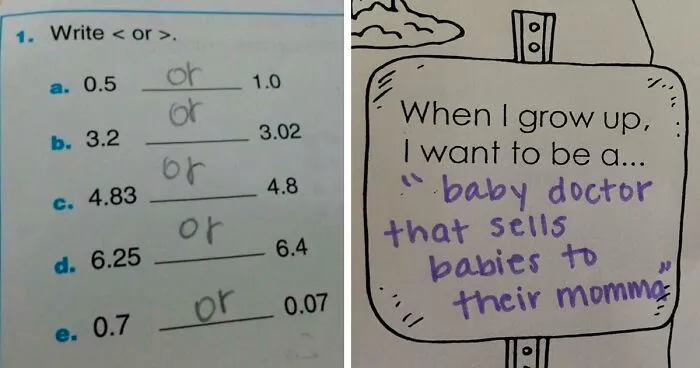 1. Write < or >.
a. 0.5 or 1.0
b. 3.2 or 3.02
c. 4.83 or 4.8
d. 6.25 or 6.4
e. 0.7 or 0.07
When I grow up,
I want to be a...
"baby doctor
that sells
babies to
their mommas"